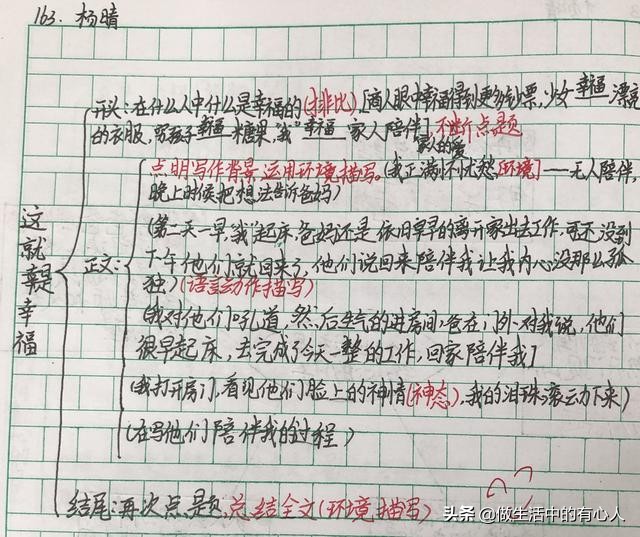 163. 杨晴
开头：在什么人中什么是幸福的(排比)[商人眼中幸福得到更多钞票，少女幸福漂亮
的衣服，穷孩子幸福 糖果，“我”幸福 家人陪伴] 不断点题
家人的爱
点明写作背景，运用环境描写。(我正满怀忧愁[环境]——无人陪伴，
晚上时候把想法告诉爸妈)
(第二天一早，“我”起床，爸妈还是依旧早早的离开家出去工作，可还没到
正文：下午他们就回来了，他们说回来陪伴我让我内心没那么孤
独)(语言动作描写)
(我对他们吼道，然后生气的进房间，爸在门外对我说，他们
很早起床，去完成了今天一整的工作，回家陪伴我]
(我打开房门，看见他们脸上的神情(神态)，我的泪珠滚动下来)
(在写他们陪伴我的过程)
结尾：再次点题，总结全文(环境描写)
这就是幸福
头条 @做生活中的有心人